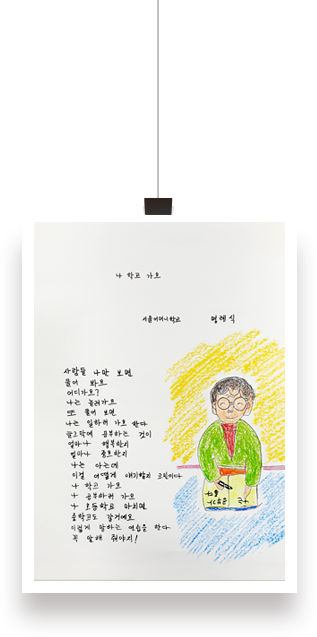 나 학교 가요
서울어머니학교
사람들 나만 보면
물어 봐요
어디가요?
나는 놀러가요
또 물어 보면
나는 일하러 가요 한다
늙그막에 공부하는 것이
얼마나 행복한지
얼마나 중요한지
나는 아는데
이걸 어떻게 얘기할지
나 학교 가요
나 공부하러 가요
나 초등학교 마치면
중학교도 갈거예요
이렇게 말하는 연습을 한다
꼭 말해 줘야지!